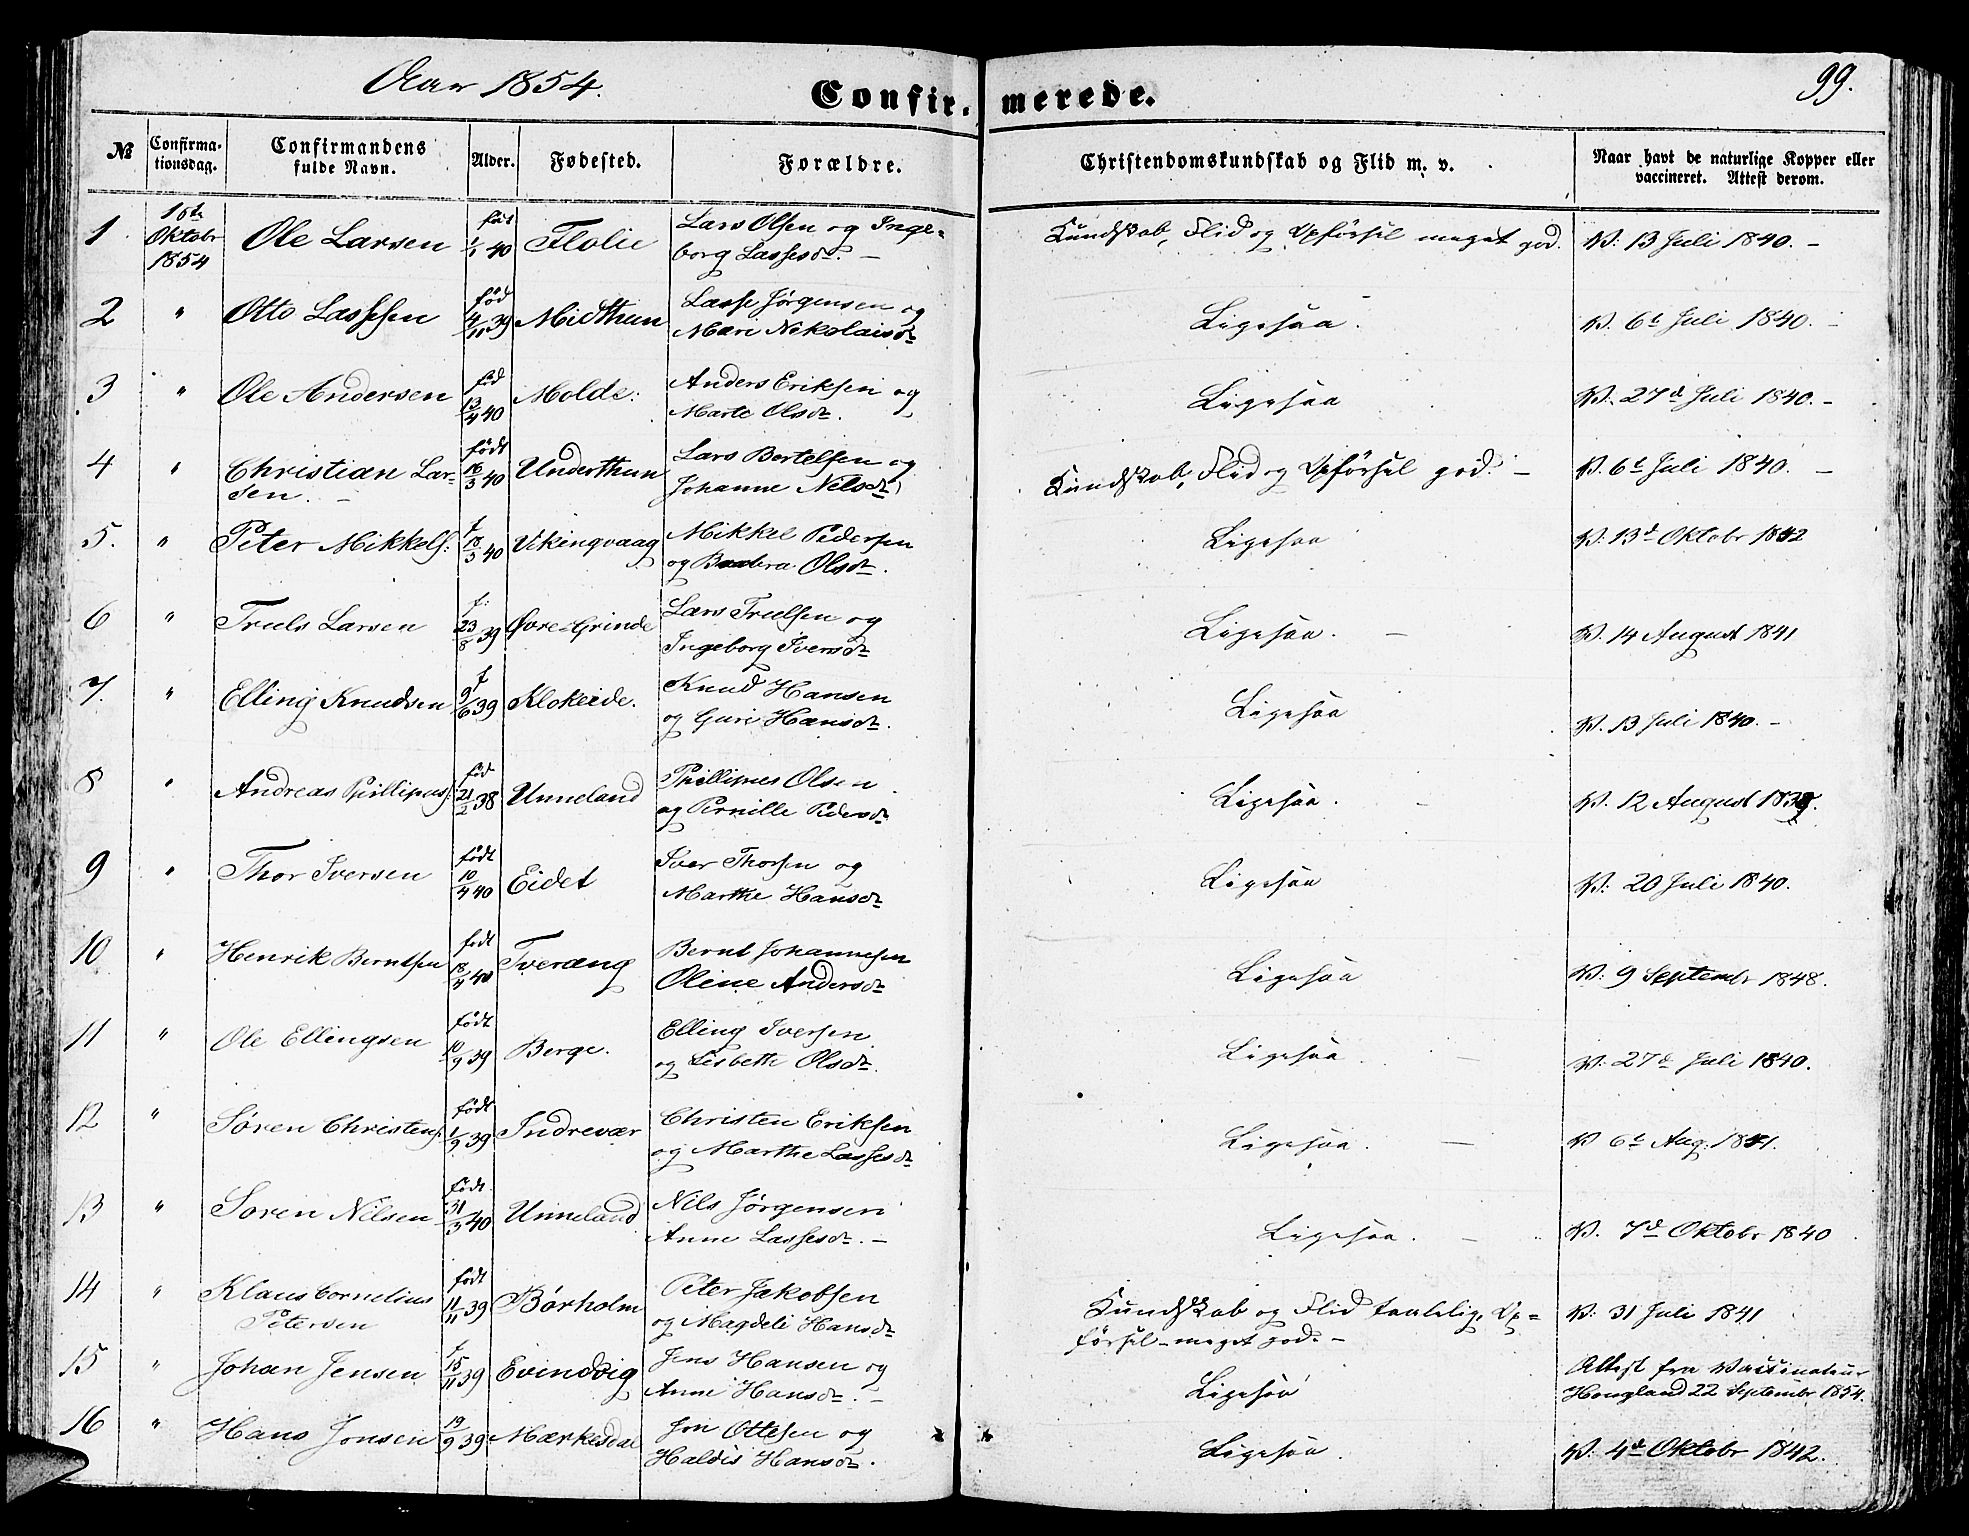 Aar 1854.
Confirmerede.
99.
№ Confirmationsdag. Confirmandens fulde Navn. Alder. Fødested. Forældre. Christendomskundskab og Flid m. v. Naar havt de naturlige Kopper eller vaccineret. Attest derom.
1 1ste Oktobr 1854 Ole Larsen født 40 Flolie Lars Olsen og Ingeborg Lassesdr. – Kundskab, Flid og Opførsel meget god. V: 13 Juli 1840. –
2 " Otto Lassesen fød 4/11 39 Midthun Lasse Jørgensen og Mari Nikolaisdr Ligesaa. V. 6t Juli 1840. –
3 " Ole Andersen fød 13/4 40 Molde: Anders Eriksen og Marte Olsdr. Ligesaa V. 27d Juli 1840. –
4 " Christian Larsen. – født 16/3 40 Underthun Lars Bertelsen og Johanne Nelsdr Kundskab, Flid og Opførsel god. – V. 6t Juli 1840. –
5. " Peter Mikkels: f 18/3 40 Vikingvaag Mikkel Pedersen og Barbra Olsdr. Ligesaa V. 13d Oktobr 1842
6 " Truls Larsen f: 23/8 39 Øvre-Grinde Lars Trulsen og Ingeborg Iversdr Ligesaa. – V. 14 August 1841
7. " Elling Knudsen f 9/6 39 Klokeide. Knud Hansen og Guri Hansdr. Ligesaa V. 13 Juli 1840. –
8 " Andreas Phillipus: fød 21/2 38 Unneland Phillipus Olsen og Pernille Pedersdr Ligesaa. V. 12 August 1839.
9 " Thor Iversen født 10/4 40 Eidet Iver Thorsen og Marthe Hansdr Ligesaa V: 20 Juli 1840.
10 " Henrik Berntsen født 18/4 40 Tveræng Bernt Johannesen Oline Andersdr Ligesaa V: 9 Septembr 1848.
11 " Ole Ellingsen født 10/9 39 Berge. Elling Iversen og Lisbeth Olsdr. Ligesaa. – V: 27d Juli 1840.
12 " Søren Christens: født 1/9 39 Indrevær Christen Eriksen og Marthe Lassesdr Ligesaa. – V 6t Aug. 1841.
13 " Søren Nilsen født 31/3 40 Unneland Nils Jørgensen Anne Lassesdr. – Ligesaa. – V. 7d Oktobr 1840
14 " Klaus Cornelius Petersen født 11/11 39 Børholm Peter Jakobsen og Magdeli Hansdr Kundskab og Flid taalelig, Opførsel meget god. – V: 31 Juli 1841
15 " Johan Jensen f 15/11 39 Evindvig Jens Hansen og Anne Hansdr. – Ligesaa Attest fra Vaccinateur Hougland 22 Septembr 1854.
16 " Hans Jonsen 19/9 39 Mærkesdal Jon Ottesen og Haldis Hansdr. Ligesaa. V. 4d Oktobr 1842.